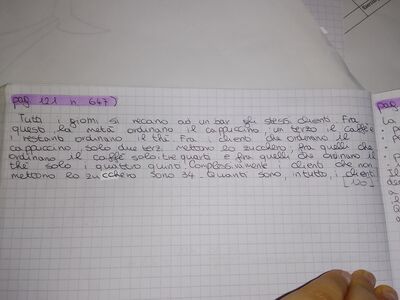 pag. 121 n 647)
Tutti i giorni si recano ad un bar gli stessi clienti. Fra
questi, la metà ordinano il cappuccino, un terzo il caffè e
i restanti ordinano il thè. Fra i clienti che ordinano il
cappuccino, solo due terzi mettono lo zucchero, fra quelli che
ordinano il caffè solo i tre quarti e fra quelli che ordinano il
thè solo i quattro quinti. Complessivamente i clienti che non
mettono lo zucchero sono 34. Quanti sono, in tutto, i clienti
[120]
pag.
La
Il